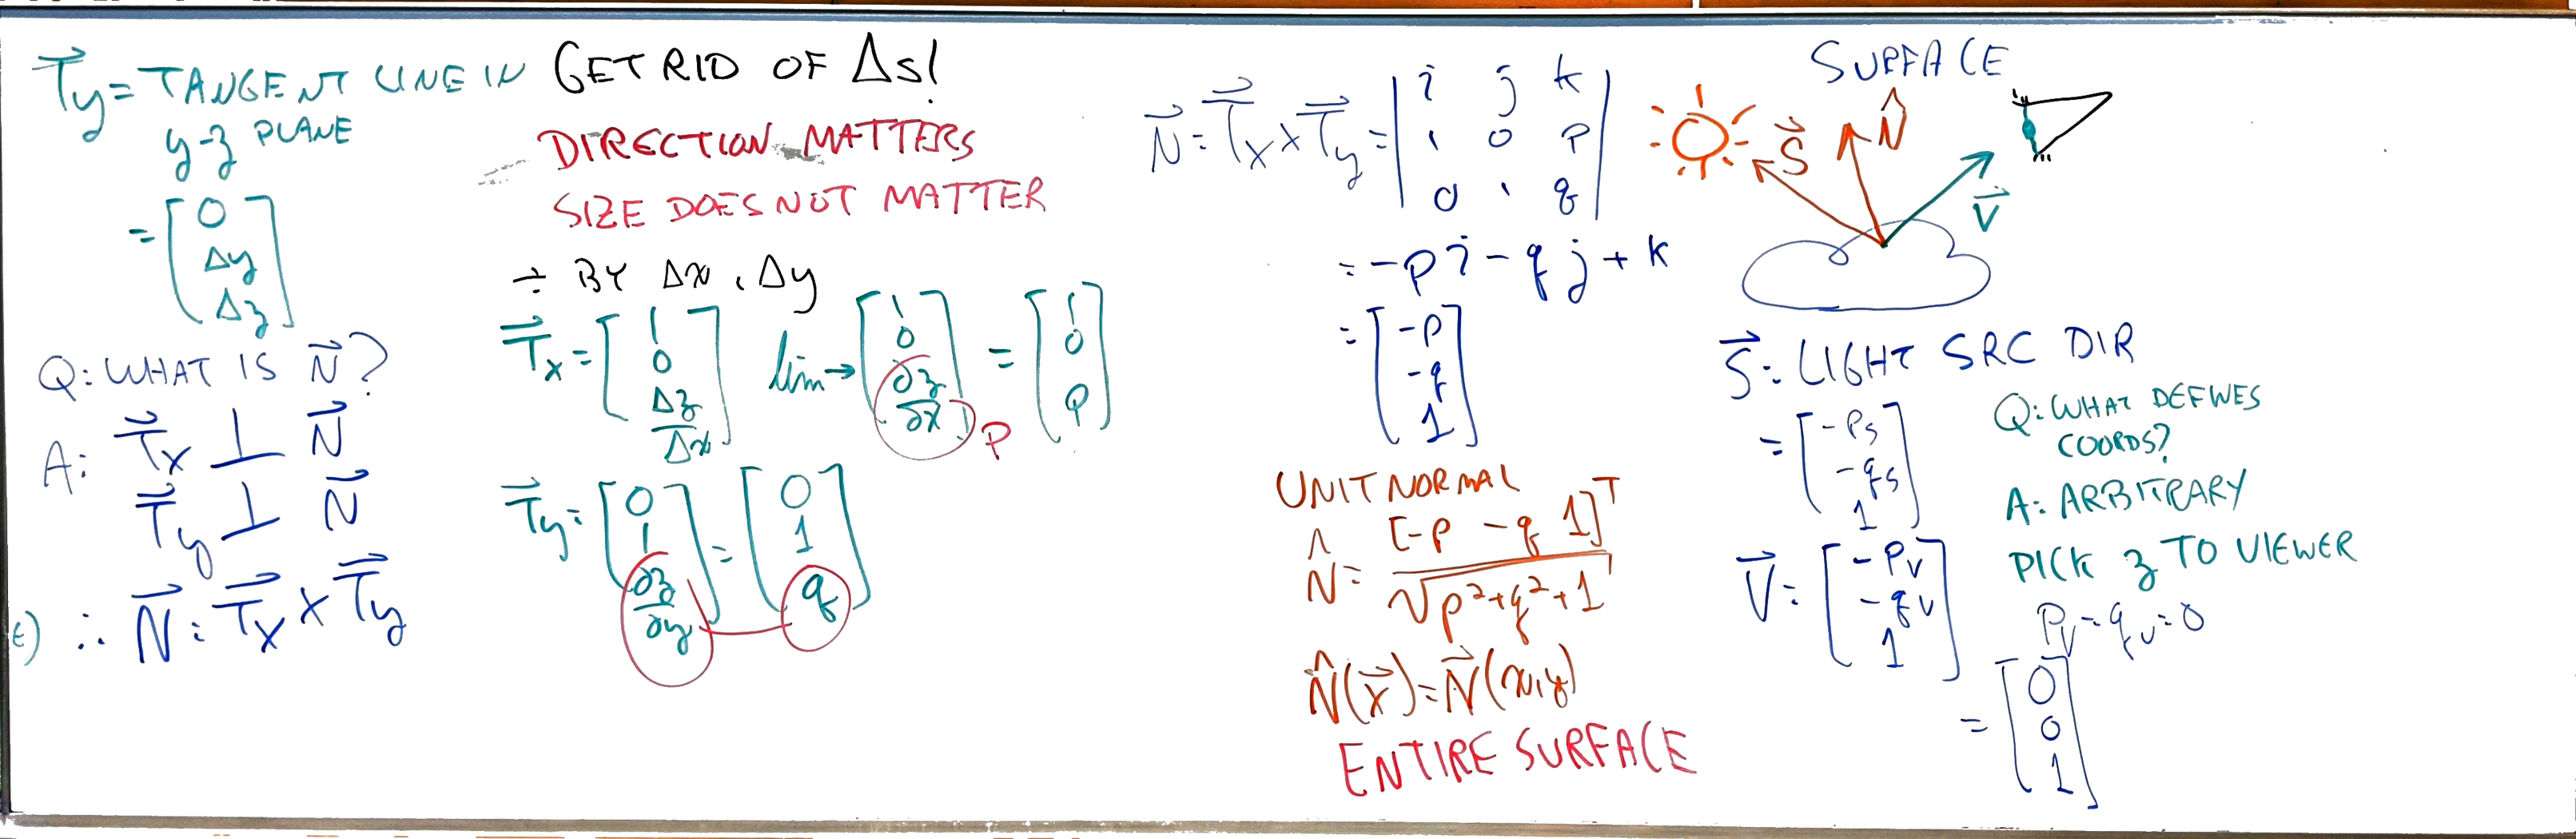 T⃗y = TANGENT LINE IN
y-z PLANE
= [0 Δy Δz]
Q: WHAT IS N⃗?
A: T⃗x ⊥ N⃗
T⃗y ⊥ N⃗
∴ N⃗ = T⃗x × T⃗y
GET RID OF Δs!
DIRECTION MATTERS
SIZE DOES NOT MATTER
÷ BY Δx, Δy
T⃗x = [1 0 Δz/Δx] lim→ [1 0 ∂z/∂x] = [1 0 p]
P
T⃗y = [0 1 ∂z/∂y] = [0 1 q]
N⃗ = T⃗x × T⃗y = | i j k
1 0 p
0 1 q |
= -p i - q j + k
= [-p -q 1]
UNIT NORMAL
N̂ = [-p -q 1]ᵀ / √p²+q²+1
N̂(x⃗) = N⃗(x,y)
ENTIRE SURFACE
SURFACE
S⃗ N̂
V⃗
S⃗: LIGHT SRC DIR
= [-ps -qs 1]
V⃗ = [-pv -qv 1]
Q: WHAT DEFINES
COORDS?
A: ARBITRARY
PICK z TO VIEWER
Pv = qv = 0
= [0 0 1]